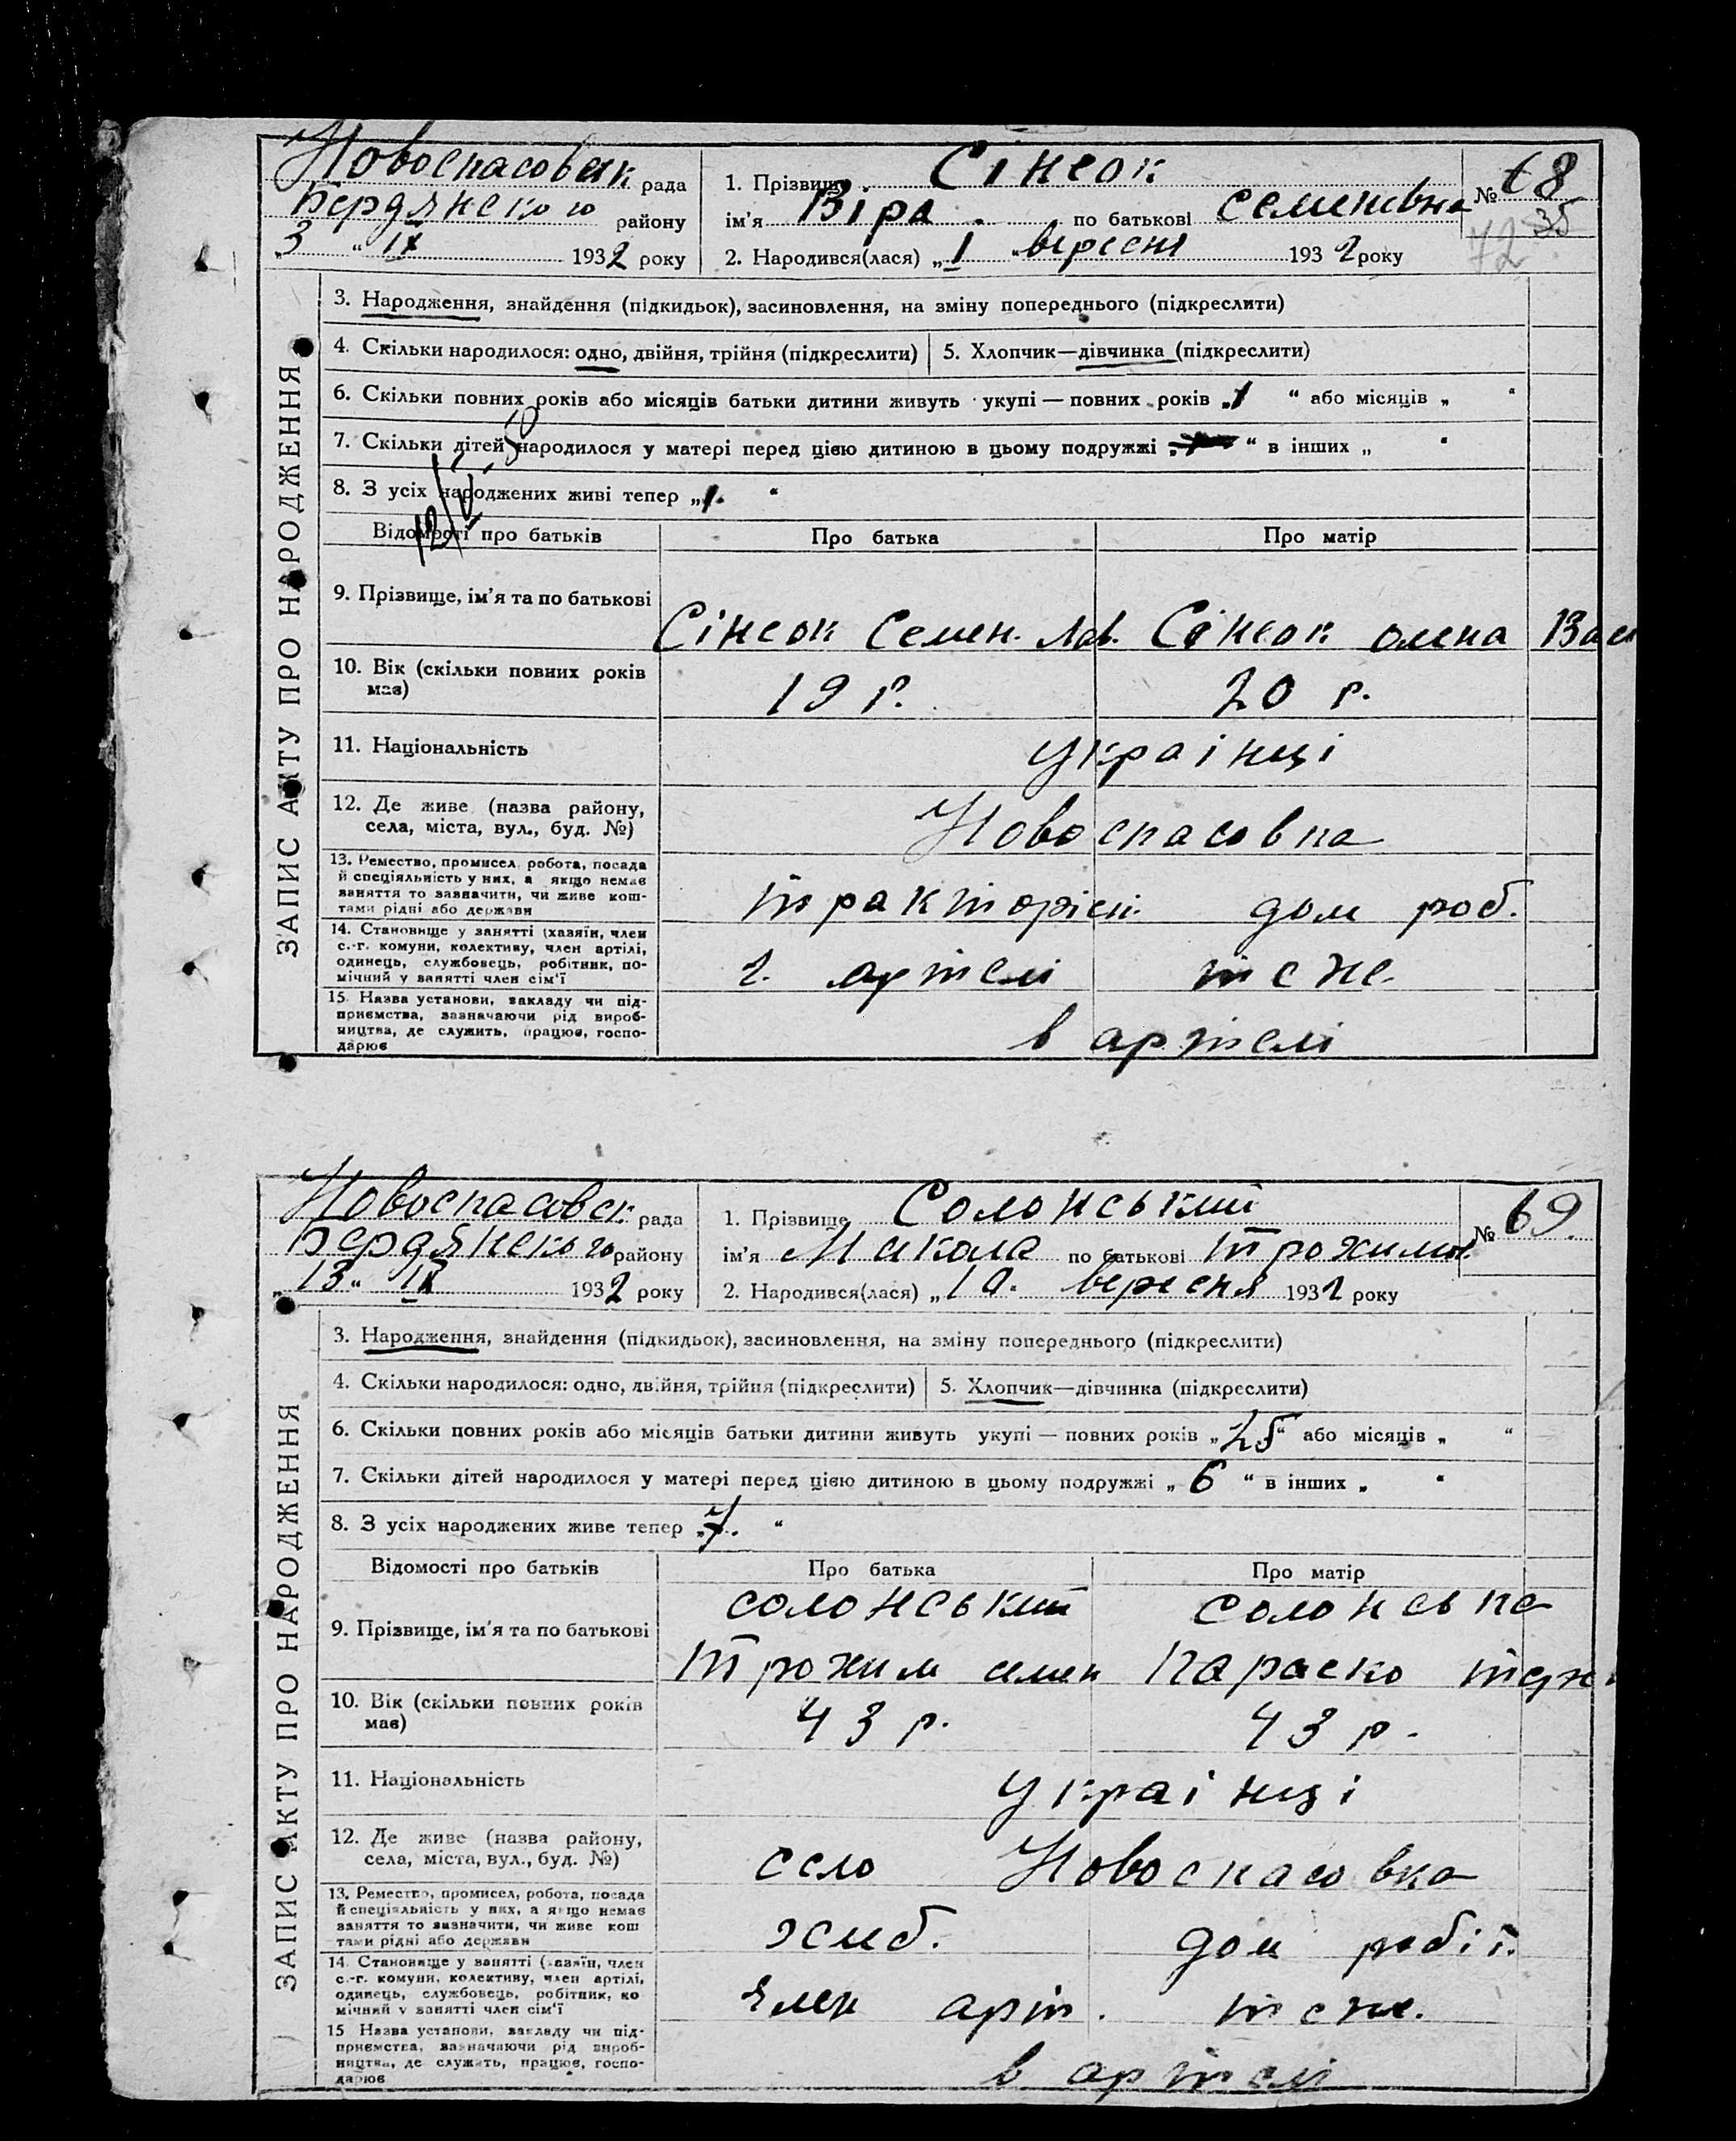 Новоспасовськ рада
Бердянського району
„3 “ IX 1932 року
1. Прізвище Сінсок
ім'я Віра по батькові Семенівна
2. Народився(лася) „1 “ вересня 1932 року
№ 68
35
72
ЗАПИС АКТУ ПРО НАРОДЖЕННЯ
3. Народження, знайдення (підкидьок), засиновлення, на зміну попереднього (підкреслити)
4. Скільки народилося: одно, двійня, трійня (підкреслити)
5. Хлопчик—дівчинка (підкреслити)
6. Скільки повних років або місяців батьки дитини живуть укупі — повних років „1 “ або місяців „ “
7. Скільки дітей народилося у матері перед цією дитиною в цьому подружжі „ “ в інших „ “
8. З усіх народжених живі тепер „1. “
Відомості про батьків
Про батька
Про матір
9. Прізвище, ім'я та по батькові
Сінсок Семен. Лав.
Сінсок олена Вас
10. Вік (скільки повних років
має)
19 р.
20 р.
11. Національність
українці
12. Де живе (назва району,
села, міста, вул., буд. №)
Новоспасовка
13. Ремество, промисел, робота, посада
й спеціяльність у них, а якщо немає
заняття то зазначити, чи живе кош-
тами рідні або держави
тракторіст.
дом роб.
14. Становище у занятті (хазяїн, член
с.-г. комуни, колективу, член артілі,
одинець, службовець, робітник, по-
мічний у занятті член сім'ї
г. артелі
теж.
15. Назва установи, закладу чи під-
приємства, зазначаючи рід вироб-
ництва, де служить, працює, госпо-
дарює
в артелі
Новоспасовск. рада
Бердянського району
„13 “ IX 1932 року
1. Прізвище Солонський
ім'я Микола по батькові Трохимов.
2. Народився(лася) „10. вересня 1932 року
№ 69.
ЗАПИС АКТУ ПРО НАРОДЖЕННЯ
3. Народження, знайдення (підкидьок), засиновлення, на зміну попереднього (підкреслити)
4. Скільки народилося: одно, двійня, трійня (підкреслити)
5. Хлопчик—дівчинка (підкреслити)
6. Скільки повних років або місяців батьки дитини живуть укупі — повних років „25“ або місяців „ “
7. Скільки дітей народилося у матері перед цією дитиною в цьому подружжі „ 6 “ в інших „ “
8. З усіх народжених живе тепер „7. “
Відомості про батьків
Про батька
Про матір
9. Прізвище, ім'я та по батькові
солонський
Трохим семен
солонська
Параско
10. Вік (скільки повних років
має)
43 р.
43 р.
11. Національність
українці
12. Де живе (назва району,
села, міста, вул., буд. №)
село Новоспасовка
13. Ремество, промисел, робота, посада
й спеціяльність у них, а якщо немає
заняття то зазначити, чи живе кош
тами рідні або держави
хлиб.
дом робіт.
14. Становище у занятті (хазяїн, член
с.-г. комуни, колективу, член артілі,
одинець, службовець, робітник, по
мічний у занятті член сім'ї
член арт.
теж.
15 Назва установи, закладу чи під-
приємства, зазначаючи рід вироб-
ництва, де служить, працює, госпо-
дарює
в артелі